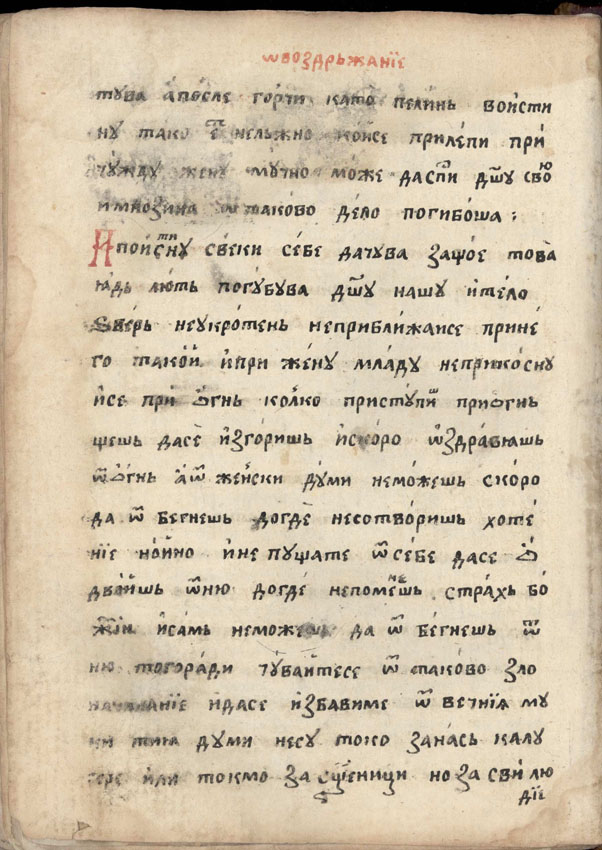 ѡвоздрьжанїе
тува а́после горчи като̀ пели́нь войсти
ну тако е҆ст нелъжно ко́йсе прилепи прѝ
чу́жду жену му́чно мо́же даспаси дш҃у сво ю
имнозина ѿ таково дело погибоша :
А поистину свеки се́бе дачува защое това̀
ꙗдь лю́ть погу́бува дш҃у нашу ите́ло
Ѕверь неукроте́нь неприбли́жаисе прине́
го тако́й и҆при же́ну мла́ду неприко́сну
и҆се прѝ ѻ҆гнь ко́лко приступиш приѻгнь
щешь дасѐ и҆зго́ришь и҆скоро ѡ҆здра́вꙗшь
ѿ ѻ҆гнь а҆ѿ же́нски ду́ми немо́жешь скоро
да ѿ бегнешь догдѐ несотво́ришь хоте́
нїе но́йно и҆не пущате ѿ се́бе дасе ѻ҆
двои́шь ѿ ню догде́ непоменешь стра́хь бо́
жїи и҆самь неможешь да ѿ бе́гнешь ѿ
ню тогора́ди чува́йтесе ѿ таково̀ зло
начинанїе и҆дасе и҆зба́виме ѿ ве́чнїѧ му
ки тиꙗ ду́ми несу то́ко зана́сь калу
гере и҆ли токмо за сщ҃еници но за сви́ лю
дїе